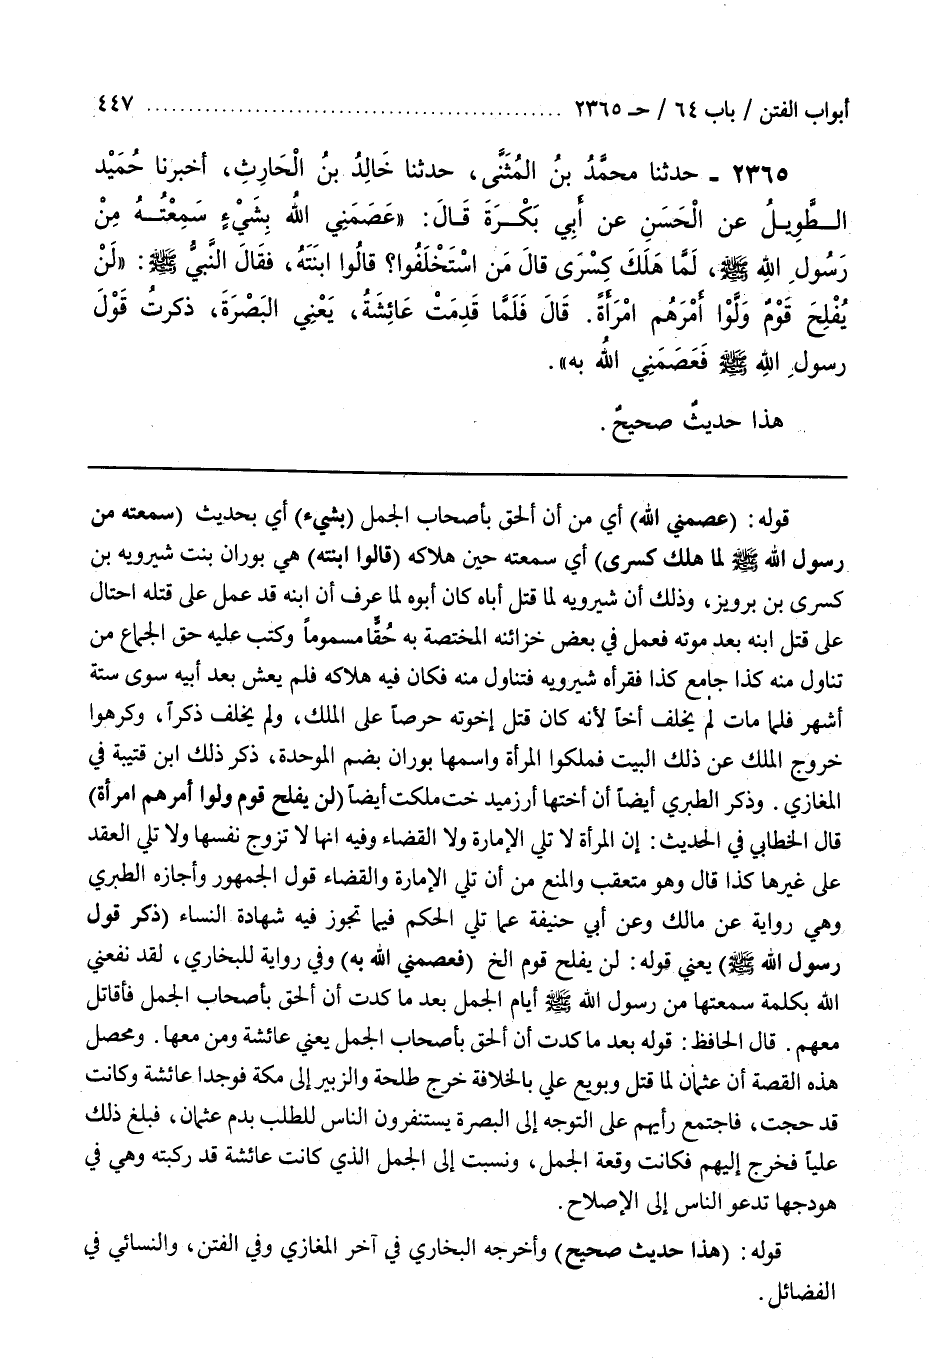 أبواب الفتن / باب ٦٤ / حـ ٢٣٦٥ .................................................. ٤٤٧
٢٣٦٥ ـ حدثنا محمَّدُ بنُ المُثَنَّى، حدثنا خَالِدُ بنُ الْحَارِثِ، أخبرنا حُمَيْد
الـطَّوِيـلُ عن الْحَسَنِ عن أَبِي بَكْـرَةَ قَـالَ: «عَصَمَنِي اللَّهُ بِشَيْءٍ سَمِعْتُـهُ مِنْ
رَسُولِ اللهِ ﷺ، لَمَّا هَلَكَ كِسْرَى قالَ مَن اسْتَخْلَفُوا؟ قالُوا ابنَتَهُ، فقَالَ النَّبيُّ ﷺ: «لَنْ
يُفْلِحَ قَوْمٌ وَلَّوْا أَمْرَهُم امْرَأَةً. قَالَ فَلَمَّا قَدِمَتْ عَائِشَةُ، يَعْنِي البَصْرَةَ، ذكرتُ قَوْلَ
رسولِ اللهِ ﷺ فَعَصَمَنِي اللهُ به».
هذا حديثٌ صحيحٌ.
قوله: (عصمني الله) أي من أن ألحق بأصحاب الجمل (بشيء) أي بحديث (سمعته من
رسول الله ﷺ لما هلك كسرى) أي سمعته حين هلاكه (قالوا ابنته) هي بوران بنت شيرويه بن
كسرى بن برويز، وذلك أن شيرويه لما قتل أباه كان أبوه لما عرف أن ابنه قد عمل على قتله احتال
على قتل ابنه بعد موته فعمل في بعض خزائنه المختصة به حُقًّا مسموماً وكتب عليه حق الجماع من
تناول منه كذا جامع كذا فقرأه شيرويه فتناول منه فكان فيه هلاكه فلم يعش بعد أبيه سوى ستة
أشهر فلما مات لم يخلف أخاً لأنه كان قتل إخوته حرصاً على الملك، ولم يخلف ذكراً، وكرهوا
خروج الملك عن ذلك البيت فملكوا المرأة واسمها بوران بضم الموحدة، ذكر ذلك ابن قتيبة في
المغازي. وذكر الطبري أيضاً أن أختها أرزميد خت ملكت أيضاً (لن يفلح قوم ولوا أمرهم امرأة)
قال الخطابي في الحديث: إن المرأة لا تلي الإمارة ولا القضاء وفيه انها لا تزوج نفسها ولا تلي العقد
على غيرها كذا قال وهو متعقب والمنع من أن تلي الإمارة والقضاء قول الجمهور وأجازه الطبري
وهي رواية عن مالك وعن أبي حنيفة عما تلي الحكم فيما تجوز فيه شهادة النساء (ذكر قول
رسول الله ﷺ) يعني قوله: لن يفلح قوم الخ (فعصمني الله به) وفي رواية للبخاري، لقد نفعني
الله بكلمة سمعتها من رسول الله ﷺ أيام الجمل بعد ما كدت أن ألحق بأصحاب الجمل فأقاتل
معهم. قال الحافظ: قوله بعد ما كدت أن ألحق بأصحاب الجمل يعني عائشة ومن معها. ومحصل
هذه القصة أن عثمان لما قتل وبويع علي بالخلافة خرج طلحة والزبير إلى مكة فوجدا عائشة وكانت
قد حجت، فاجتمع رأيهم على التوجه إلى البصرة يستنفرون الناس للطلب بدم عثمان، فبلغ ذلك
علياً فخرج إليهم فكانت وقعة الجمل، ونسبت إلى الجمل الذي كانت عائشة قد ركبته وهي في
هودجها تدعو الناس إلى الإصلاح.
قوله: (هذا حديث صحيح) وأخرجه البخاري في آخر المغازي وفي الفتن، والنسائي في
الفضائل.